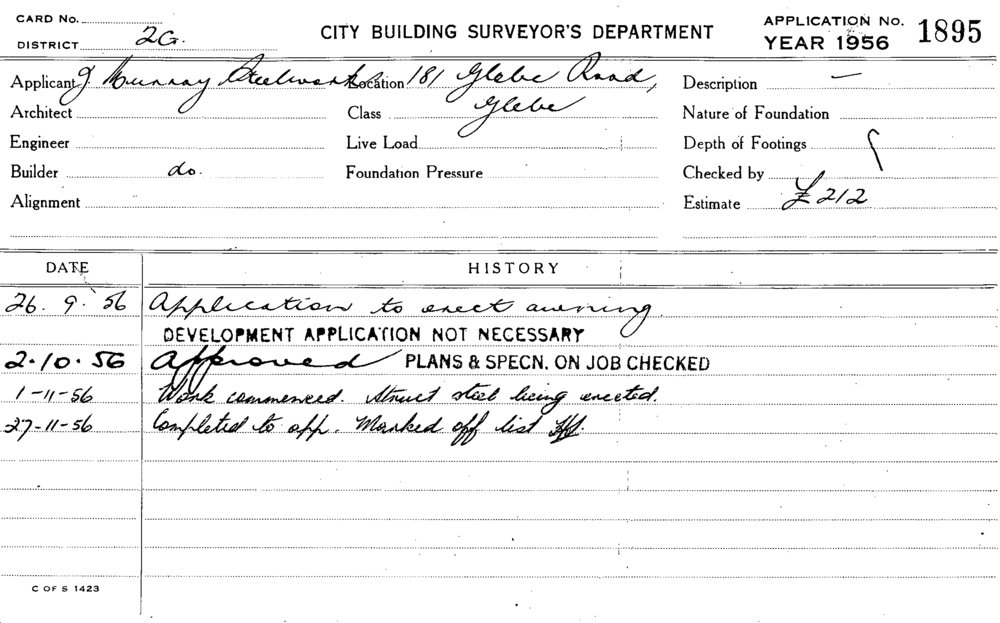 CARD NO.
DISTRICT 2G.
CITY BUILDING SURVEYOR'S DEPARTMENT
APPLICATION NO. 1895
YEAR 1956
Applicant J Murray Steelworks Location 181 Glebe Road, Description —
Architect Class Glebe Nature of Foundation
Engineer Live Load Depth of Footings
Builder do. Foundation Pressure Checked by
Alignment Estimate £212
DATE HISTORY
26. 9. 56 Application to erect awning.
DEVELOPMENT APPLICATION NOT NECESSARY
2·10·56 Approved PLANS & SPECN. ON JOB CHECKED
1-11-56 Work commenced. Struct steel being erected.
27-11-56 Completed to app. Marked off list
C OF S 1423